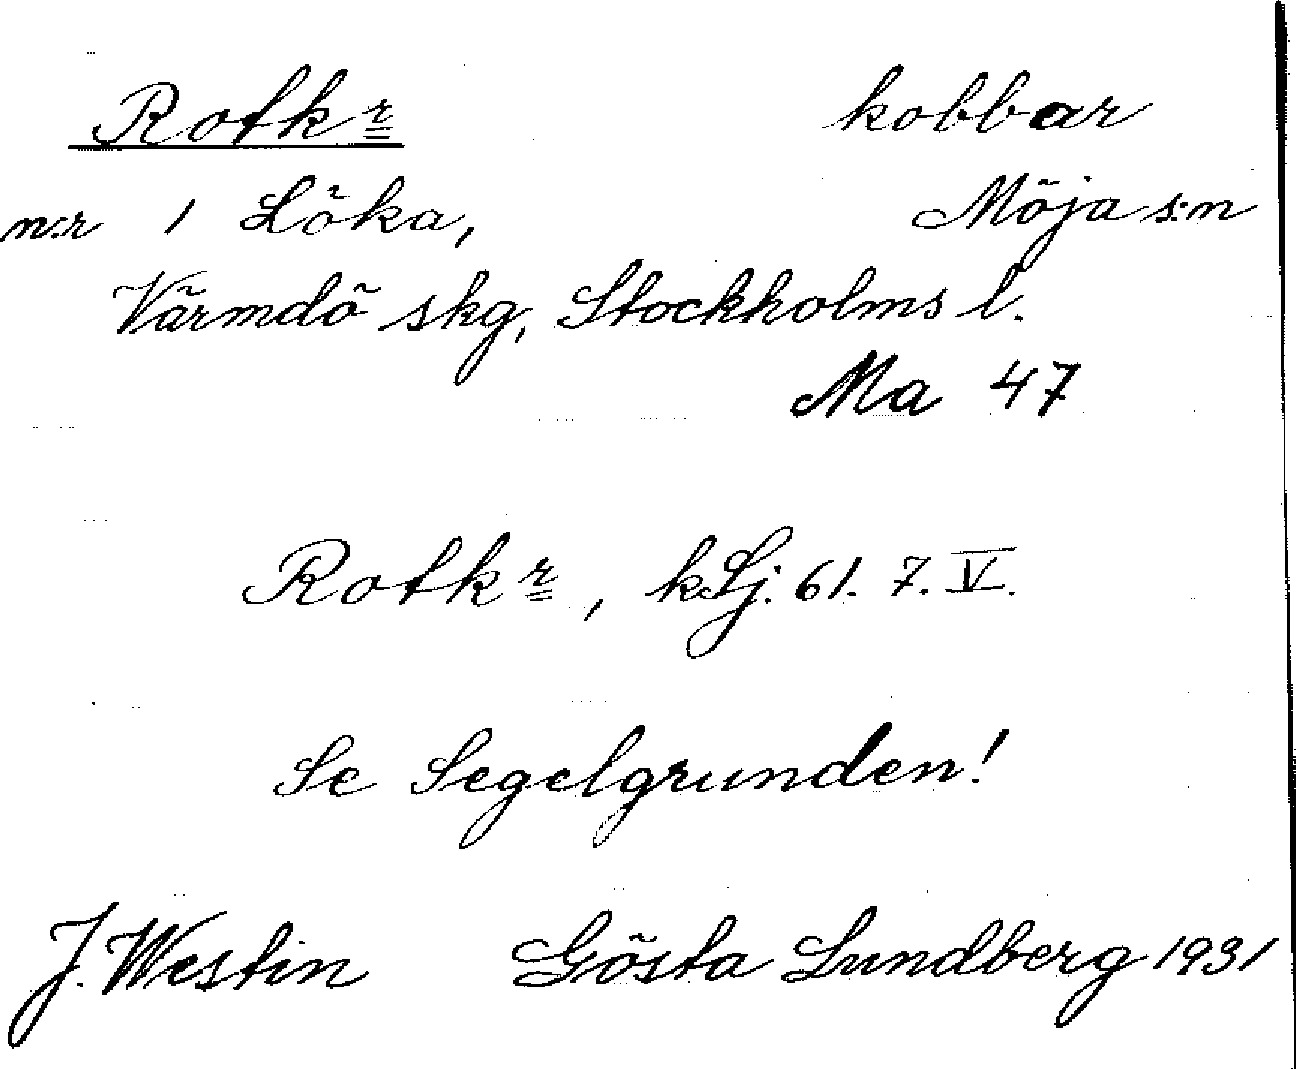 Rotkr kobbar
n:r 1 Löka, Möja s:n
Värmdö skg, Stockholms l.
Ma 47
Rotkr, kSj. 61. 7. V.
Se Segelgrunden!
J. Westin Gösta Lundberg 1931